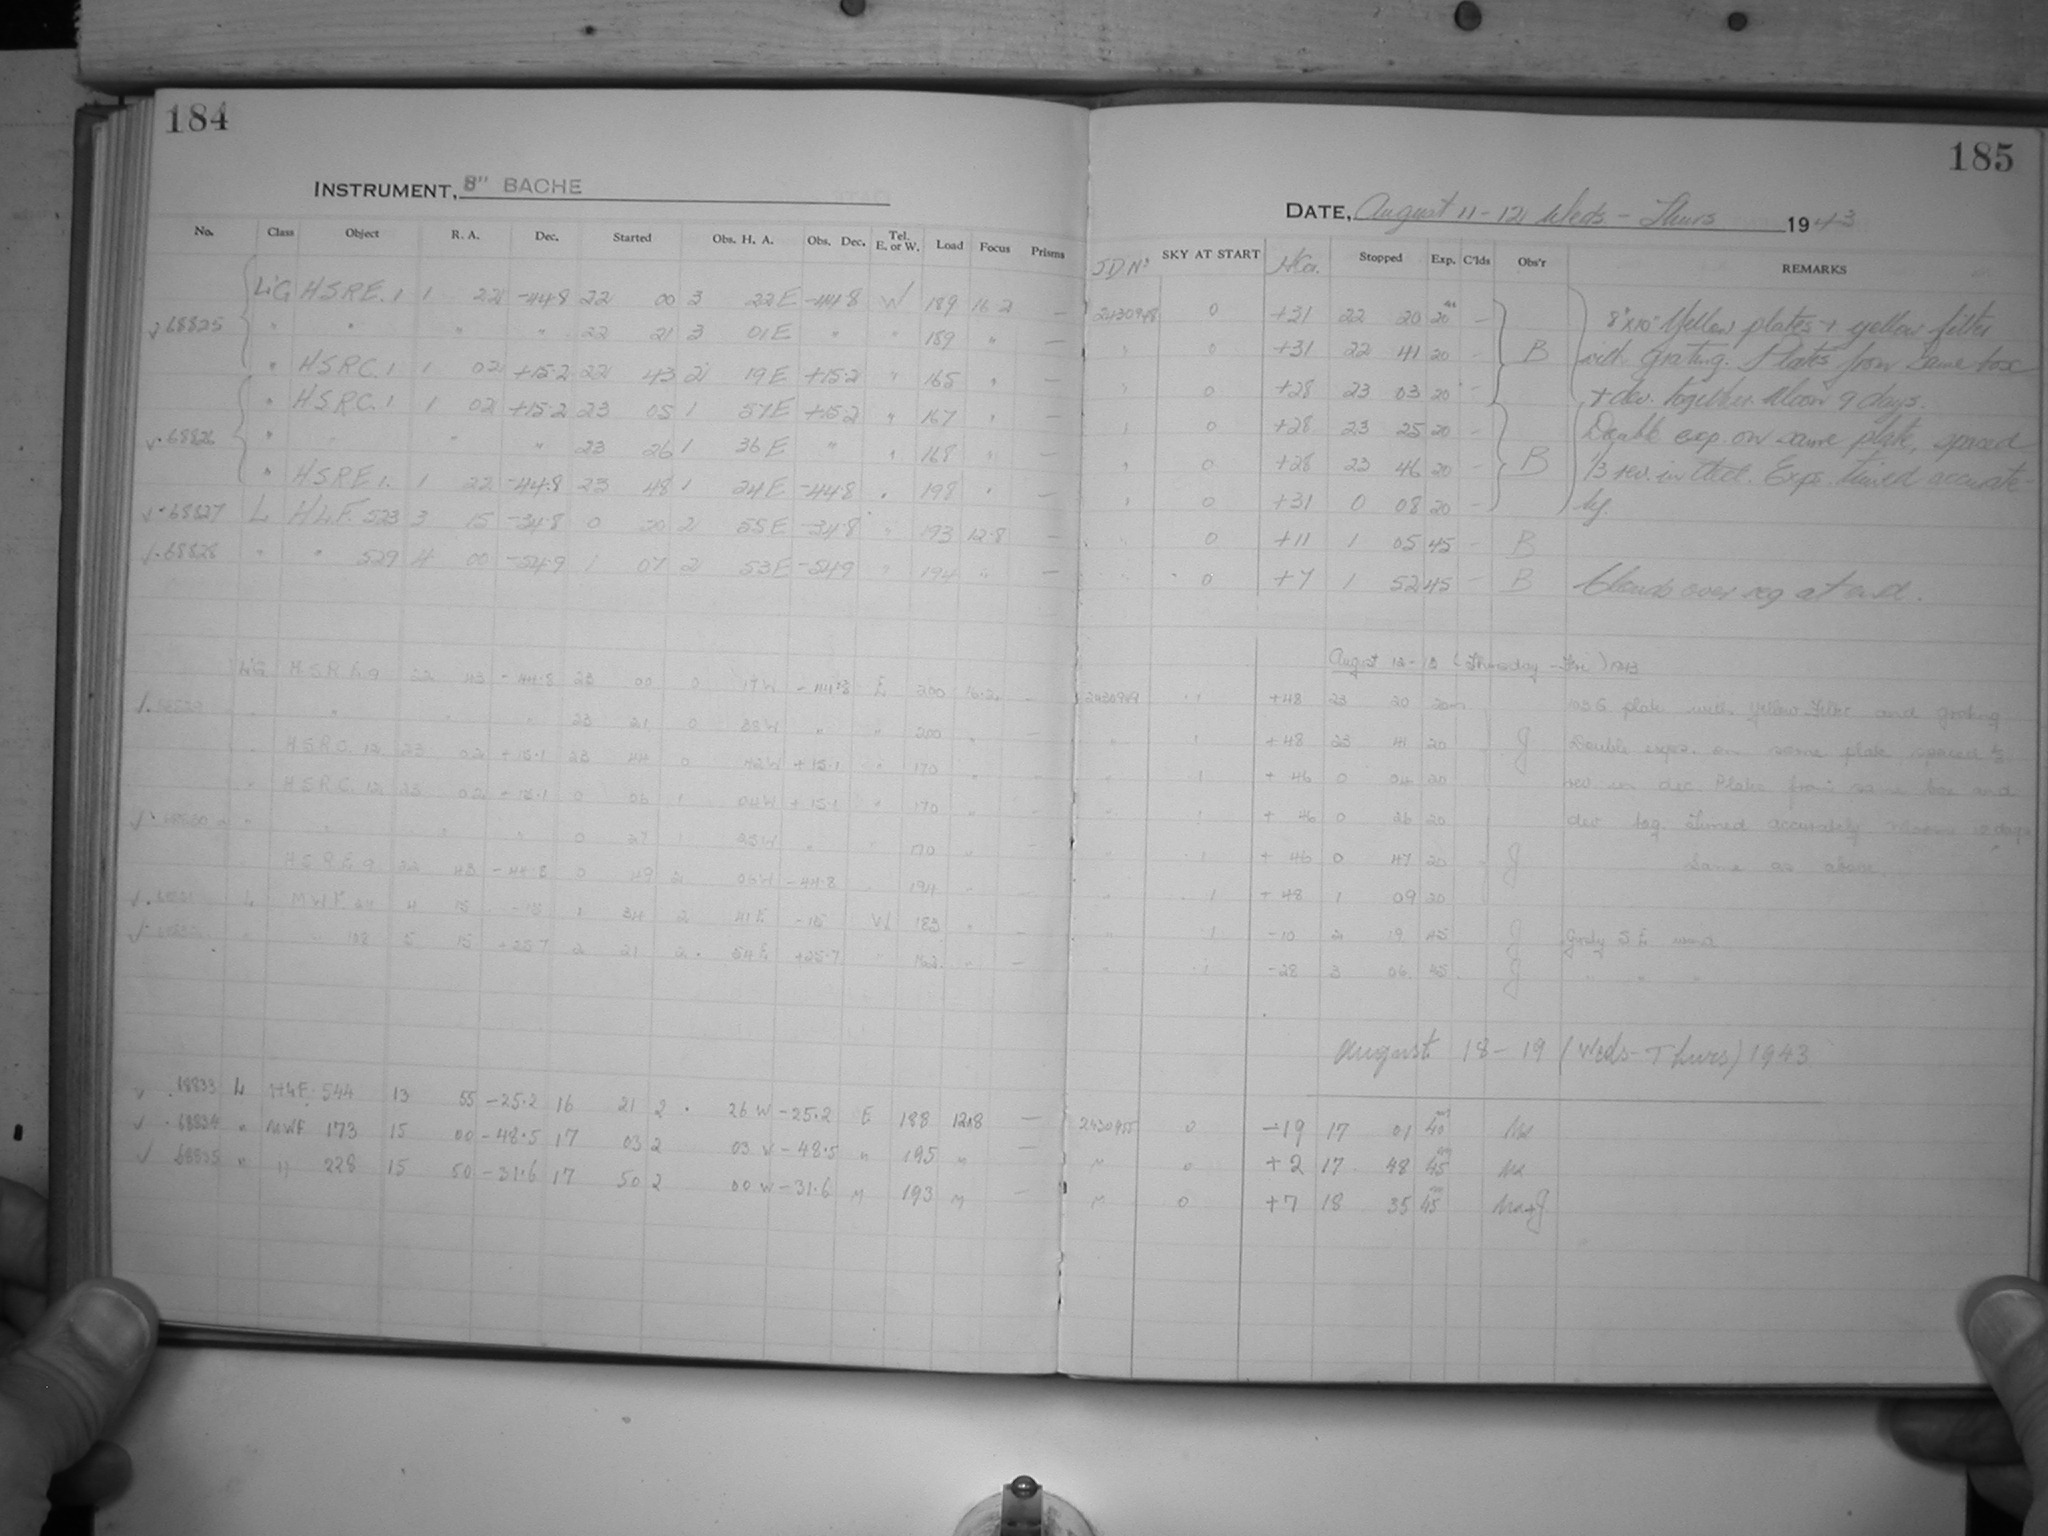 184
INSTRUMENT, 8" BACHE
No. Class Object R. A. Dec. Started Obs. H. A. Obs. Dec. Tel. E. or W. Load Focus Prisms
LiG HSRE. 1 1 22 -44.8 22 00 3 22E -44.8 W 189 16.2 —
68825 " " " " 22 21 3 01E " " 189 " —
" HSRC. 1 1 02 +15.2 22 43 2 19E +15.2 " 165 " —
" HSRC. 1 1 02 +15.2 23 05 1 57E +15.2 " 167 " —
68826 " " " " 23 26 1 36E " " 168 " —
" HSRE 1. 1 22 -44.8 23 48 1 24E -44.8 " 198 " —
68827 L HLF. 523 3 15 -34.8 0 20 2 55E -34.8 " 193 12.8 —
68828 " " 529 4 00 -54.9 1 07 2 53E -54.9 " 194 " —
LiG HSRE 9 22 43 -44.8 23 00 0 17W -44.8 E 200 16.2 —
" " " " 23 21 0 38W " " 200 " —
" HSRC. 12 23 02 +15.1 23 44 0 42W +15.1 " 170 " —
" HSRC. 12 23 02 +15.1 0 06 1 04W +15.1 " 170 " —
" " " " 0 27 1 25W " " 170 " —
HSRE 9 22 43 -44.8 0 49 2 -44.8 " 194 " —
L MWF 4 15 -15 1 34 2 41E -15 W 183 " —
" " 108 5 15 +25.7 2 21 2 54E +25.7 " " —
18833 L HLF. 544 13 55 -25.2 16 21 2 26 W -25.2 E 188 12.8 —
68834 " MWF 173 15 00 -48.5 17 03 2 03 W -48.5 " 195 " —
68835 " " 228 15 50 -31.6 17 50 2 00 W -31.6 " 193 " —
185
DATE, August 11-12 Weds - Thurs 1943
J D No SKY AT START Stopped Exp. C'lds Obs'r REMARKS
2430948 0 +31 22 20 20 — 8"x10" Yellow plates + yellow filter
" 0 +31 22 41 20 — B with grating. Plates from same box
" 0 +28 23 03 20 — + dev. together. Moon 9 days.
" 0 +28 23 25 20 — Double exp. on same plate, spaced
" 0 +28 23 46 20 — B 1/3 rev. in decl. Exps. timed accurate-
" 0 +31 0 08 20 — ly.
" 0 +11 1 05 45 — B
" 0 +7 1 52 45 — B Clouds over reg at end.
August 12-13 (Thursday - Fri) 1943
2430949 1 +48 23 20 20m 103G plate with Yellow Filter and grating
" 1 +48 23 41 20 J Double expos. on same plate spaced 1/3
" 1 +46 0 04 20 rev. in dec. Plates from same box and
" 1 +46 0 26 20 dev tog. Timed accurately. Moon 10 days
" 1 +46 0 47 20 J Same as above.
" 1 +48 1 09 20
" 1 -10 2 19 45 J Gusty S E wind
" 1 -28 3 06 45 J " " "
August 18-19 (Weds-Thurs) 1943
2430955 0 -19 17 01 40 Ma
" 0 +2 17 48 45 Ma
" 0 +7 18 35 45 Ma+J